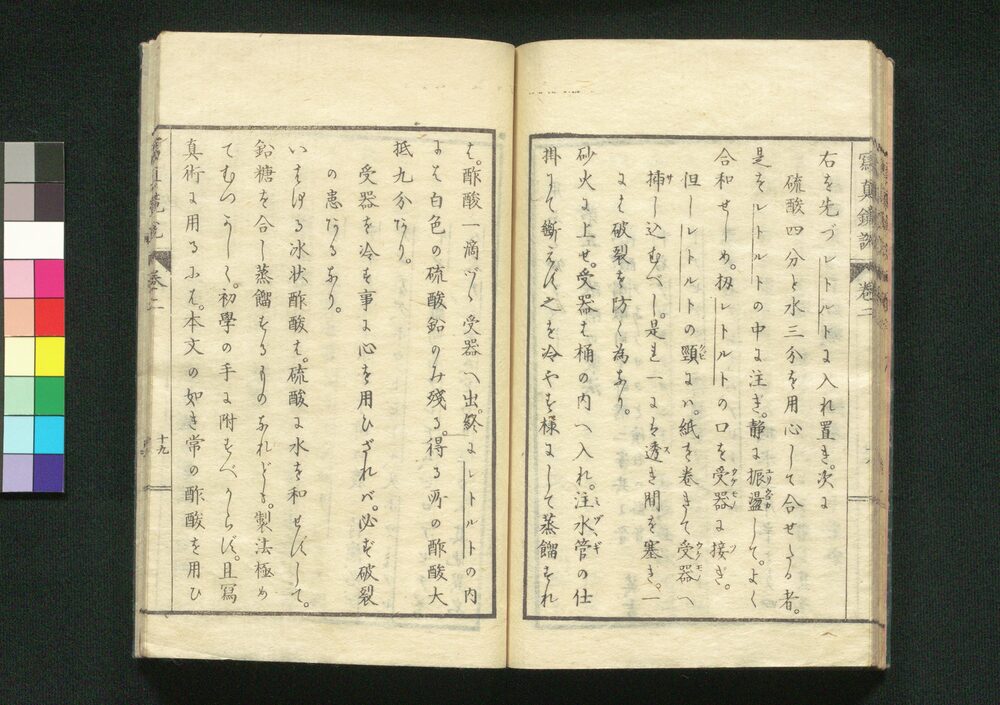 寫眞鏡説 巻二
右を先づレトルトに入れ置き。次に
硫酸四分と水三分を用心して合せたる者。
是をレトルトの中に注ぎ。静に振盪して。よく
合和せしめ。扨レトルトの口を受器に接ぎ。
但しレトルトの頸にハ。紙を巻きて受器へ
挿し込むべし。是れ一には透き間を塞き。一
には破裂を防く為なり。
砂火に上せ。受器は桶の内へ入れ。注水管の仕
掛にて斷えず之を冷やす様にして蒸餾すれ
ば。酢酸一滴づゝ受器へ出。終にレトルトの内
には白色の硫酸鉛のみ残る。得る所の酢酸大
抵九分なり。
受器を冷す事に心を用ひざれバ。必ず破裂
の患あるなり。
いはゆる氷状酢酸は。硫酸に水を和せずして。
鉛糖を合し蒸餾するものなれども。製法極め
てむつかし。初學の手に附すべからず。且寫
真術に用るには。本文の如き常の酢酸を用ひ
巻二
十九